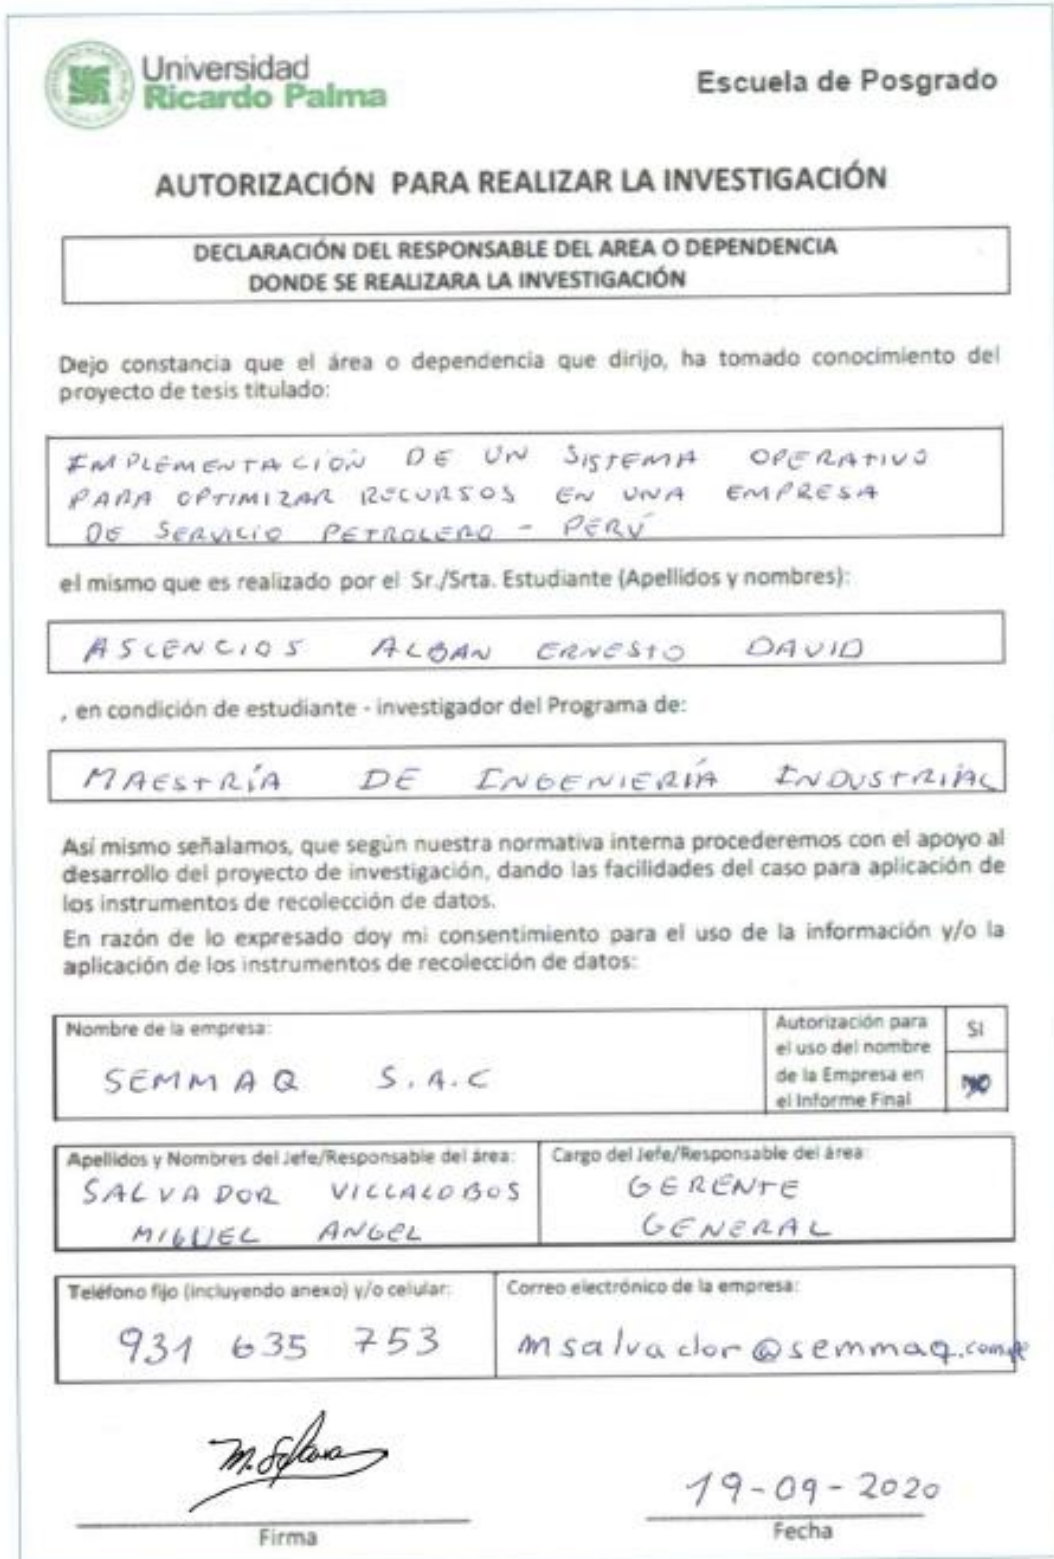 Universidad
Ricardo Palma
Escuela de Posgrado
AUTORIZACIÓN PARA REALIZAR LA INVESTIGACIÓN
DECLARACIÓN DEL RESPONSABLE DEL AREA O DEPENDENCIA
DONDE SE REALIZARA LA INVESTIGACIÓN
Dejo constancia que el área o dependencia que dirijo, ha tomado conocimiento del
proyecto de tesis titulado:
IMPLEMENTACIÓN DE UN SISTEMA OPERATIVO
PARA OPTIMIZAR RECURSOS EN UNA EMPRESA
DE SERVICIO PETROLERO - PERÚ
el mismo que es realizado por el Sr./Srta. Estudiante (Apellidos y nombres):
ASCENCIOS ALBAN ERNESTO DAVID
, en condición de estudiante - investigador del Programa de:
MAESTRÍA DE INGENIERÍA INDUSTRIAL
Así mismo señalamos, que según nuestra normativa interna procederemos con el apoyo al
desarrollo del proyecto de investigación, dando las facilidades del caso para aplicación de
los instrumentos de recolección de datos.
En razón de lo expresado doy mi consentimiento para el uso de la información y/o la
aplicación de los instrumentos de recolección de datos:
Nombre de la empresa:
SEMMAQ S.A.C
Autorización para
el uso del nombre
de la Empresa en
el Informe Final
SI
NO
Apellidos y Nombres del Jefe/Responsable del área:
SALVADOR VILLALOBOS
MIGUEL ANGEL
Cargo del Jefe/Responsable del área:
GERENTE
GENERAL
Teléfono fijo (incluyendo anexo) y/o celular:
931 635 753
Correo electrónico de la empresa:
msalvador@semmaq.com.pe
Firma
19-09-2020
Fecha